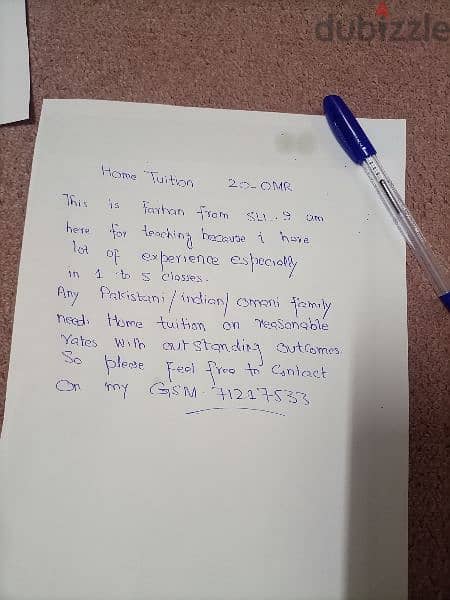 dubizzle
Home Tuition 20-OMR
This is Farhan from SLL. I am
here for teaching because i have
lot of experience especially
in 1 to 5 classes.
Any Pakistani/indian/omani family
need. Home tuition on reasonable
rates with outstanding outcomes.
So please feel free to Contact
On my GSM. 71217533